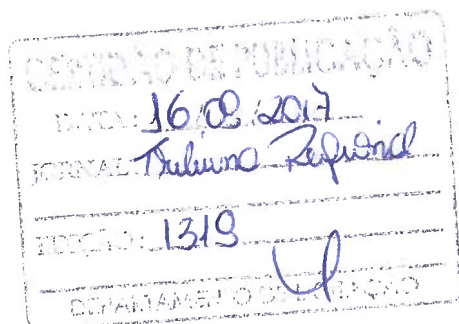 CERTIDÃO DE PUBLICAÇÃO
DATA: 16/02/2017
JORNAL: Tribuna Regional
EDIÇÃO: 1319
DEPARTAMENTO DE